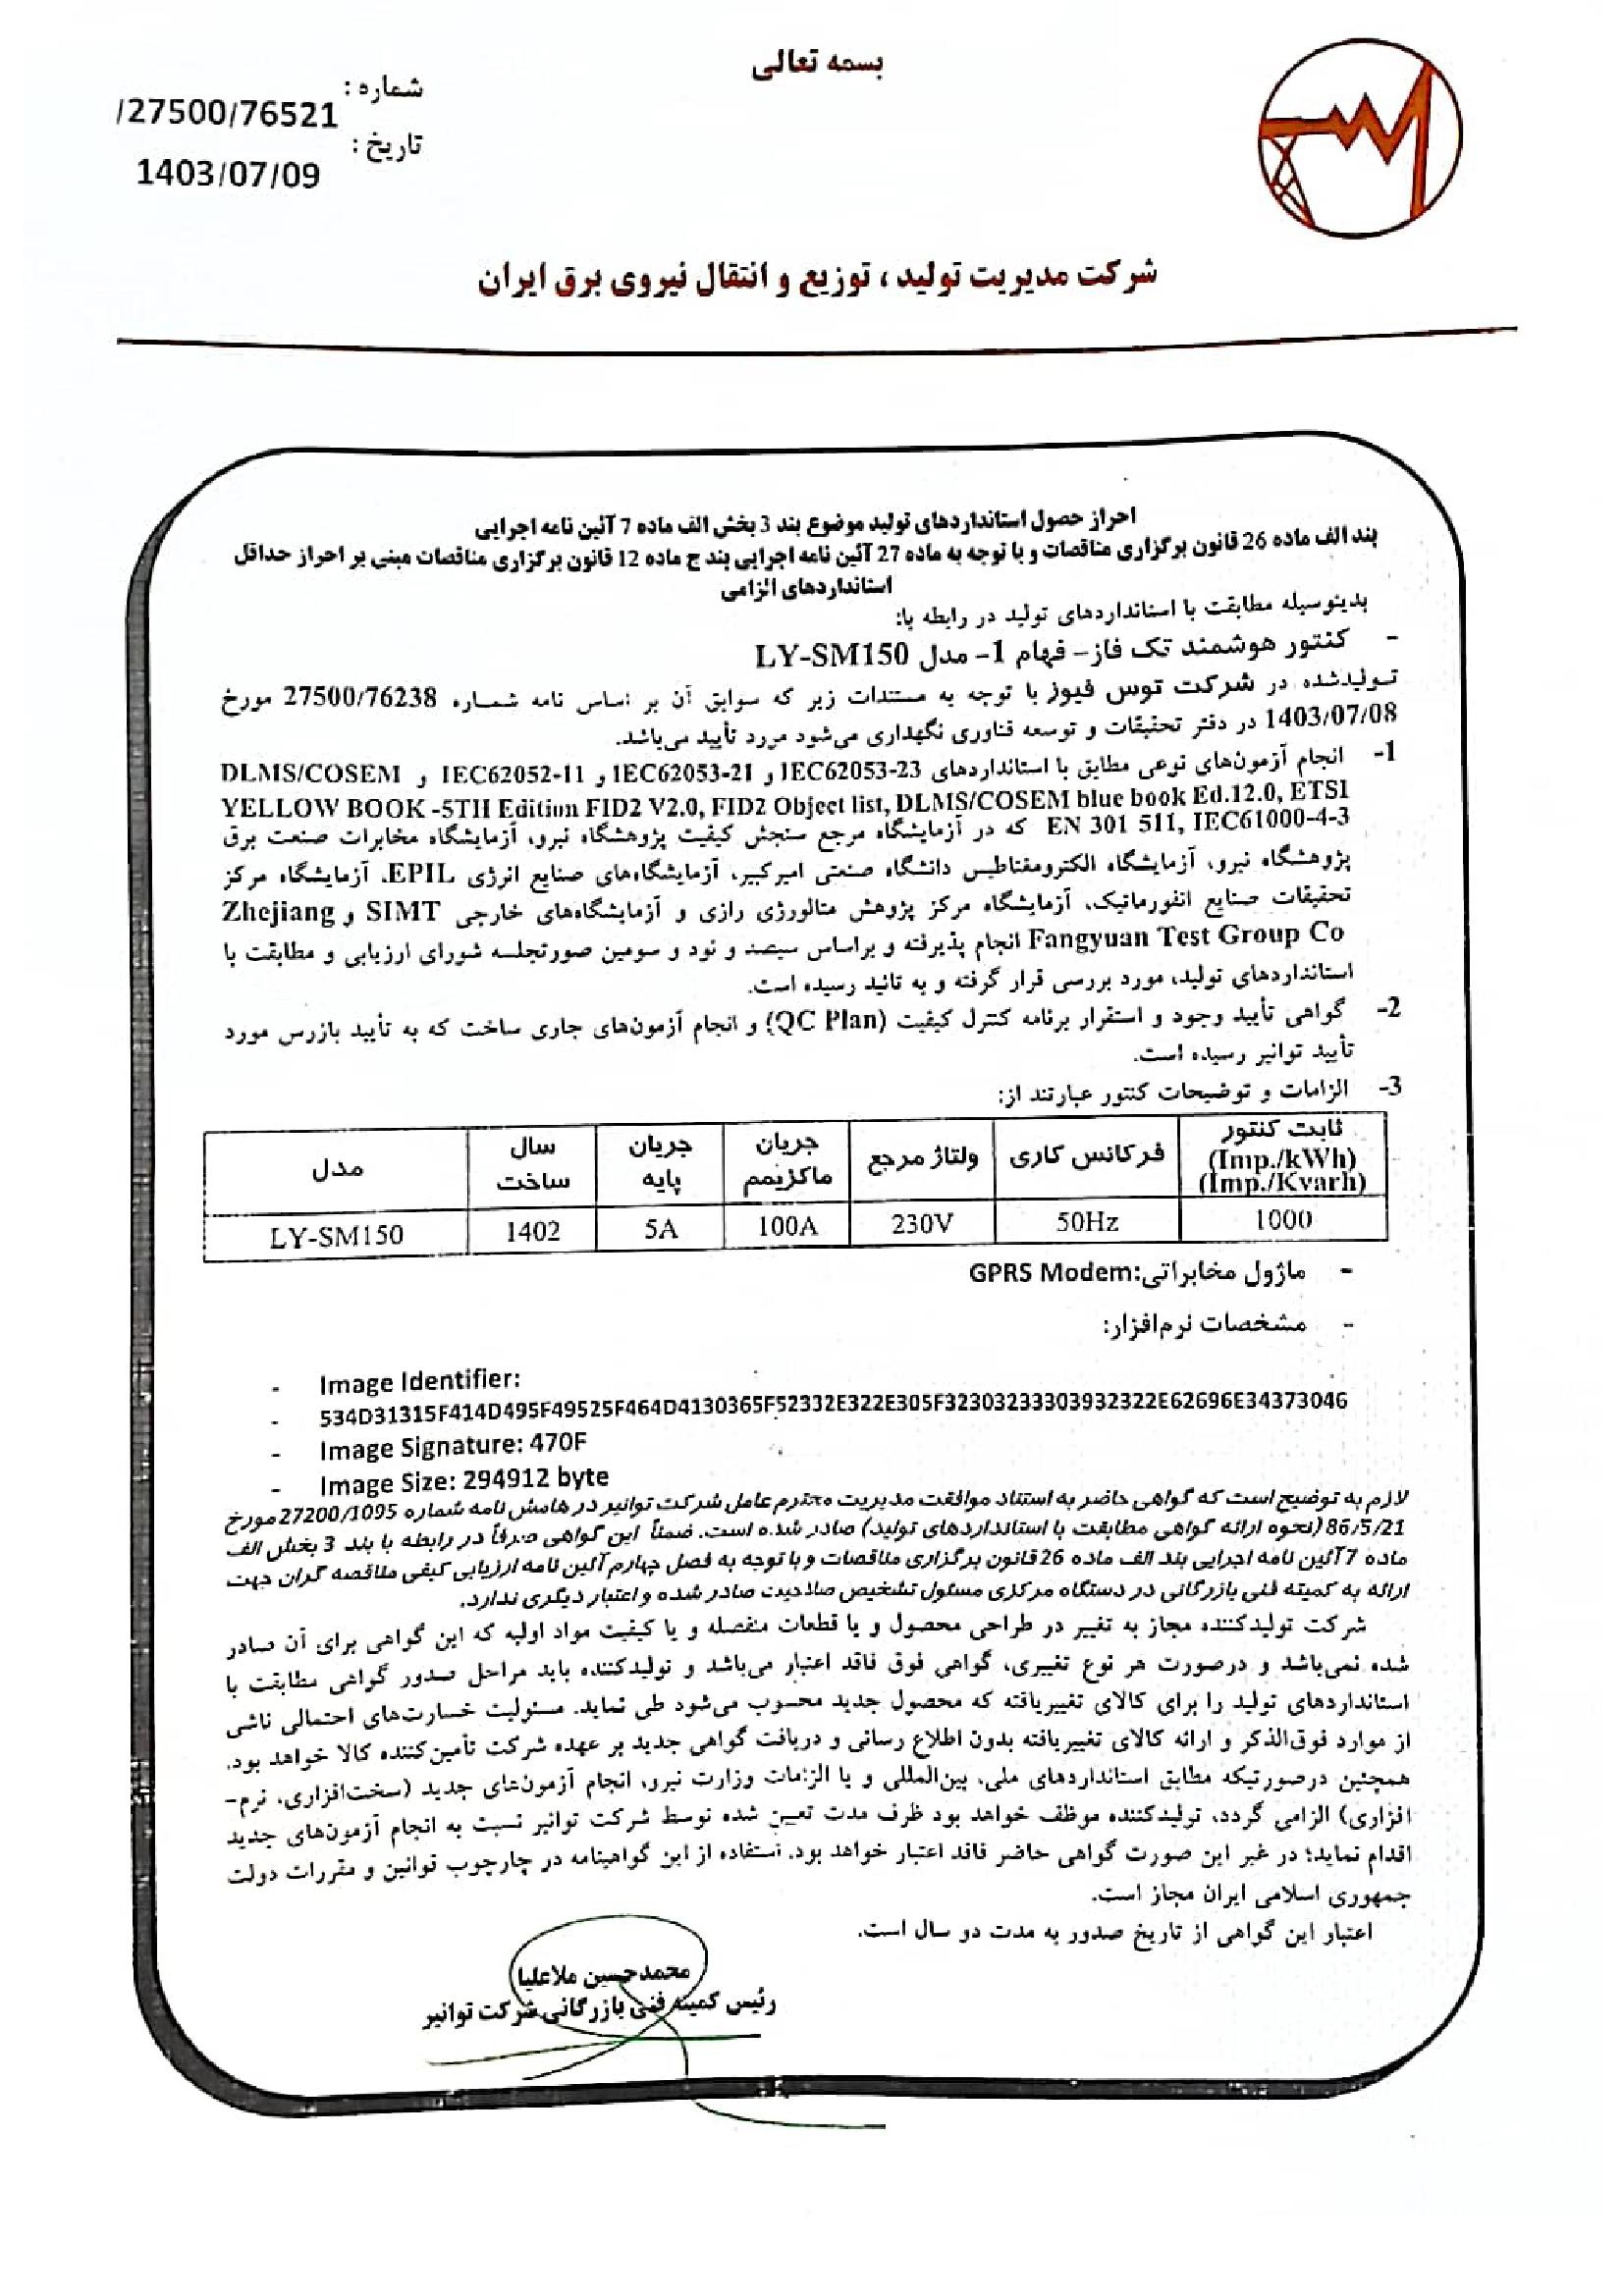 بسمه تعالی
شماره :
/27500/76521
تاریخ :
1403/07/09
شرکت مدیریت تولید ، توزیع و انتقال نیروی برق ایران
احراز حصول استانداردهای تولید موضوع بند 3 بخش الف ماده 7 آئین نامه اجرایی
بند الف ماده 26 قانون برگزاری مناقصات و با توجه به ماده 27 آئین نامه اجرایی بند ج ماده 12 قانون برگزاری مناقصات مبنی بر احراز حداقل
استانداردهای الزامی
بدینوسیله مطابقت با استانداردهای تولید در رابطه با:
- کنتور هوشمند تک فاز- فهام 1- مدل LY-SM150
تولیدشده در شرکت توس فیوز با توجه به مستندات زیر که سوابق آن بر اساس نامه شماره 27500/76238 مورخ
1403/07/08 در دفتر تحقیقات و توسعه فناوری نگهداری می‌شود مورد تأیید می‌باشد.
1- انجام آزمون‌های نوعی مطابق با استانداردهای IEC62053-23 و IEC62053-21 و IEC62052-11 و DLMS/COSEM
YELLOW BOOK -5TH Edition FID2 V2.0, FID2 Object list, DLMS/COSEM blue book Ed.12.0, ETSI
EN 301 511, IEC61000-4-3 که در آزمایشگاه مرجع سنجش کیفیت پژوهشگاه نیرو، آزمایشگاه مخابرات صنعت برق
پژوهشگاه نیرو، آزمایشگاه الکترومغناطیس دانشگاه صنعتی امیرکبیر، آزمایشگاه‌های صنایع انرژی EPIL، آزمایشگاه مرکز
تحقیقات صنایع انفورماتیک، آزمایشگاه مرکز پژوهش متالورژی رازی و آزمایشگاه‌های خارجی SIMT و Zhejiang
Fangyuan Test Group Co انجام پذیرفته و براساس سیصد و نود و سومین صورتجلسه شورای ارزیابی و مطابقت با
استانداردهای تولید، مورد بررسی قرار گرفته و به تائید رسیده است.
2- گواهی تأیید وجود و استقرار برنامه کنترل کیفیت (QC Plan) و انجام آزمون‌های جاری ساخت که به تأیید بازرس مورد
تأیید توانیر رسیده است.
3- الزامات و توضیحات کنتور عبارتند از:
ثابت کنتور (Imp./kWh) (Imp./Kvarh) فرکانس کاری ولتاژ مرجع جریان ماکزیمم جریان پایه سال ساخت مدل
1000 50Hz 230V 100A 5A 1402 LY-SM150
- ماژول مخابراتی:GPRS Modem
- مشخصات نرم‌افزار:
- Image Identifier:
- 534D31315F414D495F49525F464D4130365F52332E322E305F32303233303932322E62696E34373046
- Image Signature: 470F
- Image Size: 294912 byte
لازم به توضیح است که گواهی حاضر به استناد موافقت مدیریت محترم عامل شرکت توانیر در هامش نامه شماره 27200/1095 مورخ
86/5/21 (نحوه ارائه گواهی مطابقت با استانداردهای تولید) صادر شده است. ضمناً این گواهی صرفاً در رابطه با بند 3 بخش الف
ماده 7 آئین نامه اجرایی بند الف ماده 26 قانون برگزاری مناقصات و با توجه به فصل چهارم آئین نامه ارزیابی کیفی مناقصه گران جهت
ارائه به کمیته فنی بازرگانی در دستگاه مرکزی مسئول تشخیص صلاحیت صادر شده و اعتبار دیگری ندارد.
شرکت تولیدکننده مجاز به تغییر در طراحی محصول و یا قطعات منفصله و یا کیفیت مواد اولیه که این گواهی برای آن صادر
شده نمی‌باشد و درصورت هر نوع تغییری، گواهی فوق فاقد اعتبار می‌باشد و تولیدکننده باید مراحل صدور گواهی مطابقت با
استانداردهای تولید را برای کالای تغییریافته که محصول جدید محسوب می‌شود طی نماید. مسئولیت خسارت‌های احتمالی ناشی
از موارد فوق‌الذکر و ارائه کالای تغییریافته بدون اطلاع رسانی و دریافت گواهی جدید بر عهده شرکت تأمین‌کننده کالا خواهد بود.
همچنین درصورتیکه مطابق استانداردهای ملی، بین‌المللی و یا الزامات وزارت نیرو، انجام آزمون‌های جدید (سخت‌افزاری، نرم-
افزاری) الزامی گردد، تولیدکننده موظف خواهد بود ظرف مدت تعیین شده توسط شرکت توانیر نسبت به انجام آزمون‌های جدید
اقدام نماید؛ در غیر این صورت گواهی حاضر فاقد اعتبار خواهد بود. استفاده از این گواهینامه در چارچوب قوانین و مقررات دولت
جمهوری اسلامی ایران مجاز است.
اعتبار این گواهی از تاریخ صدور به مدت دو سال است.
محمدحسین ملاعلیا
رئیس کمیته فنی بازرگانی شرکت توانیر